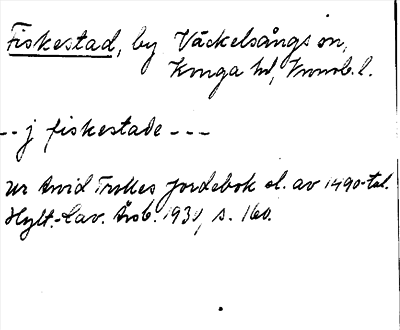 Fiskestad, by Väckelsångs sn,
Konga hd, Kronob. l.
-- j fiskestade ---
ur Arvid Trolles jordebok sl. av 1490-tal.
Hylt.-Cav. Årsb. 1931, s. 160.